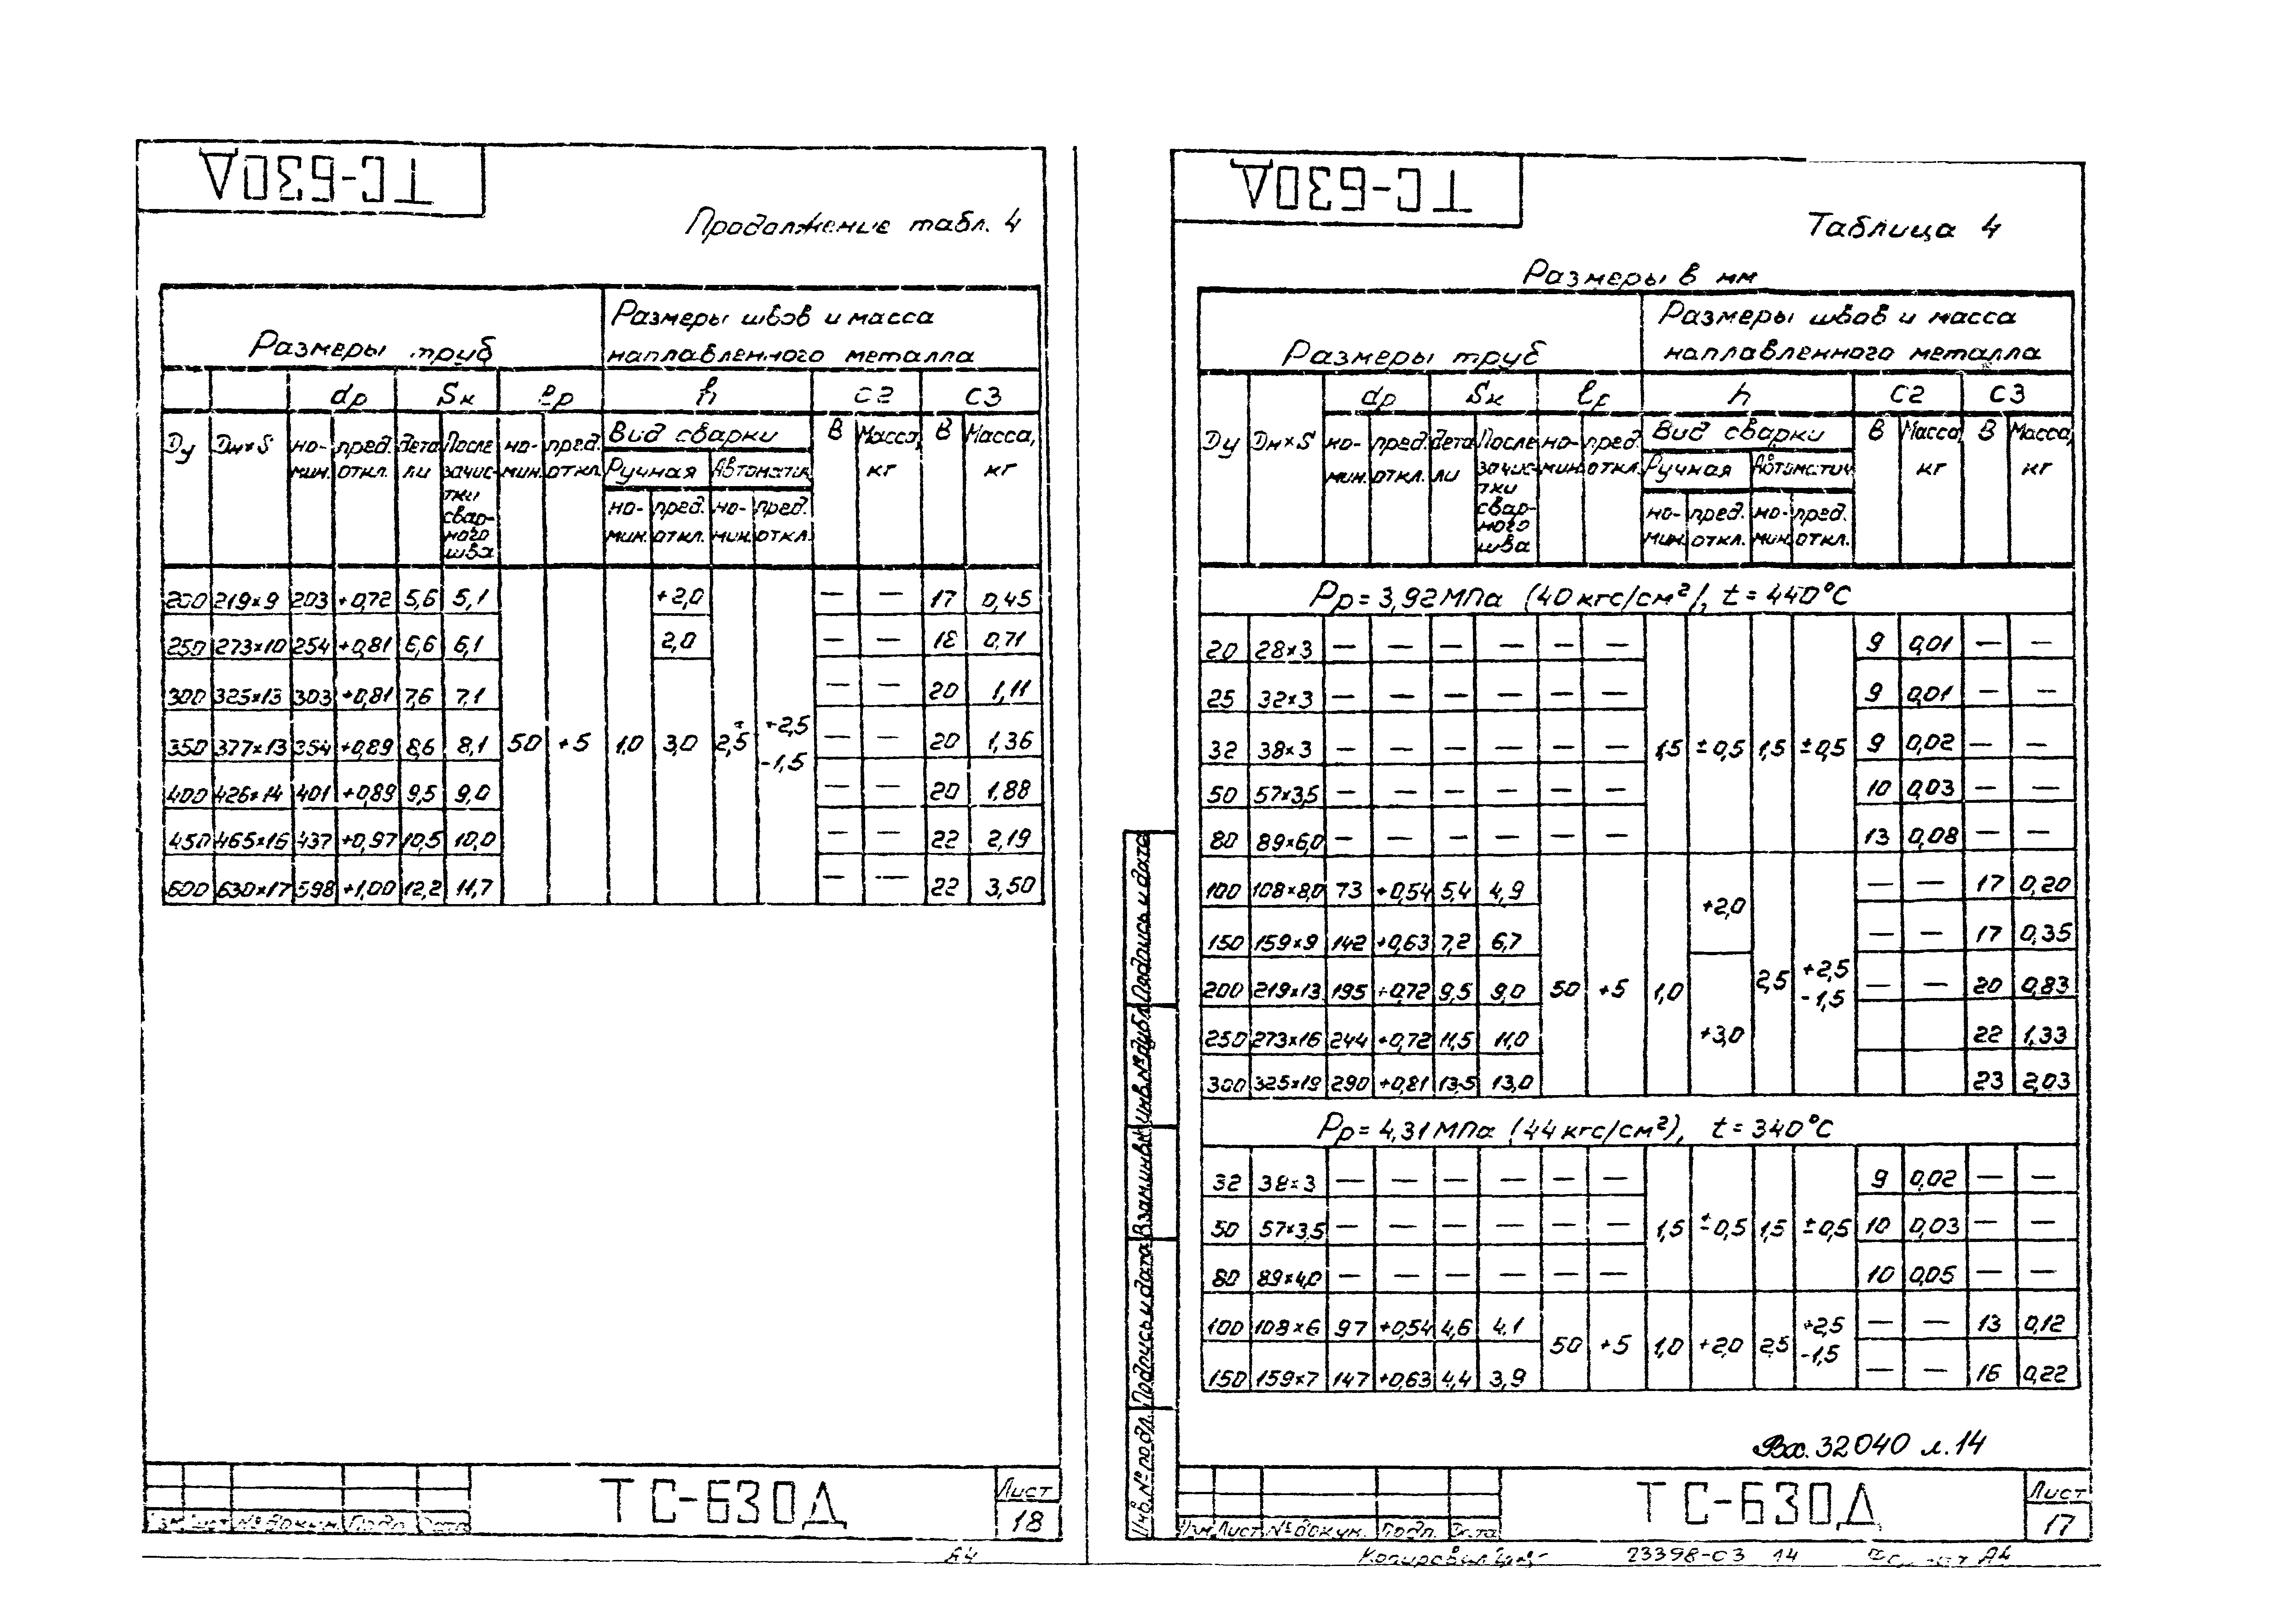 ТС-630Д
Продолжение табл. 4
Размеры труб
Размеры швов и масса
наплавленного металла
dр Sк ℓр h С2 С3
Dу Dн×S но-мин. пред. откл. Детали После зачистки сварного шва но-мин. пред. откл. Вид сварки В Масса, кг В Масса, кг
Ручная Автоматич
но-мин. пред. откл. но-мин. пред. откл.
200 219×9 203 +0,72 5,6 5,1 +2,0 — — 17 0,45
250 273×10 254 +0,81 6,6 6,1 2,0 — — 18 0,71
300 325×13 303 +0,81 7,6 7,1 — — 20 1,11
350 377×13 354 +0,89 8,6 8,1 50 +5 1,0 3,0 2,5 +2,5 -1,5 — — 20 1,36
400 426×14 401 +0,89 9,5 9,0 — — 20 1,88
450 465×16 437 +0,97 10,5 10,0 — — 22 2,19
600 630×17 598 +1,00 12,2 11,7 — — 22 3,50
ТС-630Д
Лист
18
Изм Лист № докум. Подп. Дата
А4
ТС-630Д
Таблица 4
Размеры в мм
Размеры труб
Размеры швов и масса
наплавленного металла
dр Sк ℓр h С2 С3
Dу Dн×S но-мин. пред. откл. Детали После зачистки сварного шва но-мин. пред. откл. Вид сварки В Масса, кг В Масса, кг
Ручная Автоматич
но-мин. пред. откл. но-мин. пред. откл.
Рр = 3,92 МПа (40 кгс/см²), t = 440°С
20 28×3 — — — — — — 9 0,01 — —
25 32×3 — — — — — — 9 0,01 — —
32 38×3 — — — — — — 1,5 ±0,5 1,5 ±0,5 9 0,02 — —
50 57×3,5 — — — — — — 10 0,03 — —
80 89×6,0 — — — — — — 13 0,08 — —
100 108×8,0 73 +0,54 5,4 4,9 +2,0 — — 17 0,20
150 159×9 142 +0,63 7,2 6,7 — — 17 0,35
200 219×13 195 +0,72 9,5 9,0 50 +5 1,0 2,5 +2,5 -1,5 — — 20 0,83
250 273×16 244 +0,72 11,5 11,0 +3,0 22 1,33
300 325×19 290 +0,81 13,5 13,0 23 2,03
Рр = 4,31 МПа (44 кгс/см²), t = 340°С
32 38×3 — — — — — — 9 0,02 — —
50 57×3,5 — — — — — — 1,5 ±0,5 1,5 ±0,5 10 0,03 — —
80 89×4,0 — — — — — — 10 0,05 — —
100 108×6 97 +0,54 4,6 4,1 50 +5 1,0 +2,0 2,5 +2,5 -1,5 — — 13 0,12
150 159×7 147 +0,63 4,4 3,9 — — 16 0,22
Вх. 32040 л. 14
Инв. № подл. Подпись и дата Взам. инв. № Инв. № дубл. Подпись и дата
ТС-630Д
Лист
17
Изм Лист № докум. Подп. Дата
Копировал 23398-03 14 А4